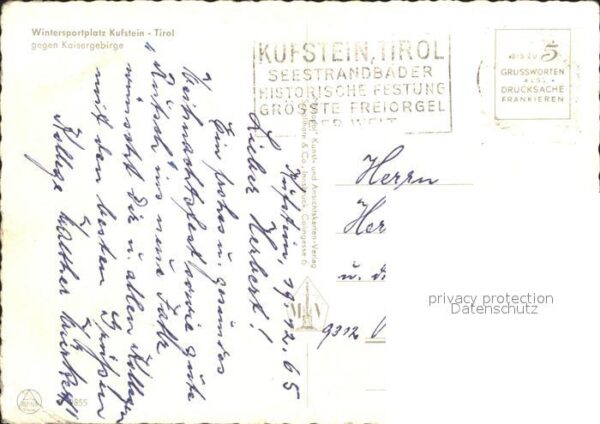 Wintersportplatz Kufstein - Tirol
gegen Kaisergebirge
KUFSTEIN, TIROL
SEESTRANDBÄDER
HISTORISCHE FESTUNG
GRÖSSTE FREIORGEL
DER WELT
BIS ZU 5
GRUSSWORTEN
ALS
DRUCKSACHE
FRANKIEREN
Kufstein, 19.12.65
Lieber Herbert!
Ein frohes u. gesundes
Weihnachtsfest sowie gute
"Rutsch" ins neue Jahr
wünscht dir u. allen Kollegen
mit den besten Grüßen
Kollege Walther
Kunst- und Ansichtskarten-Verlag
& Co., Innsbruck, Coningasse 6
Herrn
Her
u. d
9312
privacy protection
Datenschutz